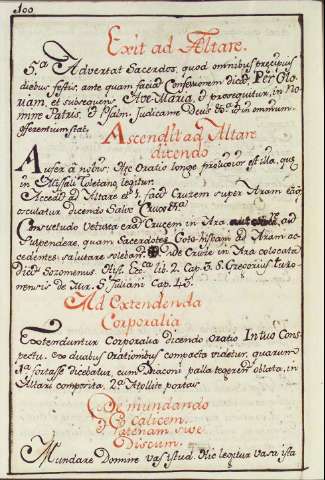 100
Exit ad Altare.
5.ª Advertat Sacerdos, quod omnibus præcipuis
diebus festis, ante quam faciat Confessionem dicat Per Glo-
riam, et subsequens Ave Maria, et prosequitur, in No-
mine Patris, et Psalm. Judicame Deus &c.ª id in omnium
offerentium stat.
Ascendit ad Altare
dicendo
Aufer a nobis: Hæc Oratio longe prolixior est illa, quæ
in Missali Toletano legitur.
Accedit ad Altare et facit Crucem super Aram eāq.
osculatur dicendo Salve Crux &ª
Consuetudo Vetus erat Crucem in Ara ad
suspendere, quam Sacerdotes Goto-hispani ad Aram ac-
cedentes salutare solebant. De Cruce in Ara colocata
dicit Sozomenus. Hist. Ecc.ca lib. 2. Cap. 3. S. Gregorius Turo-
nensis de Mir. S. Juliani Cap. 43.
Ad Extendenda
Corporalia
Extenduntur Corporalia dicendo Oratio In tuo Cons-
pectu. Ex duabus Orationibus compacta videtur, quarum
1.ª fortasse dicebatur, cum Diaconi palla tegerent oblata, in
Altari composita, 2.ª Atollite portas
De mundando
Calicem,
Patenam, sive
Discum.
Mundare Domine vas istud. Hic legitur vasa ista